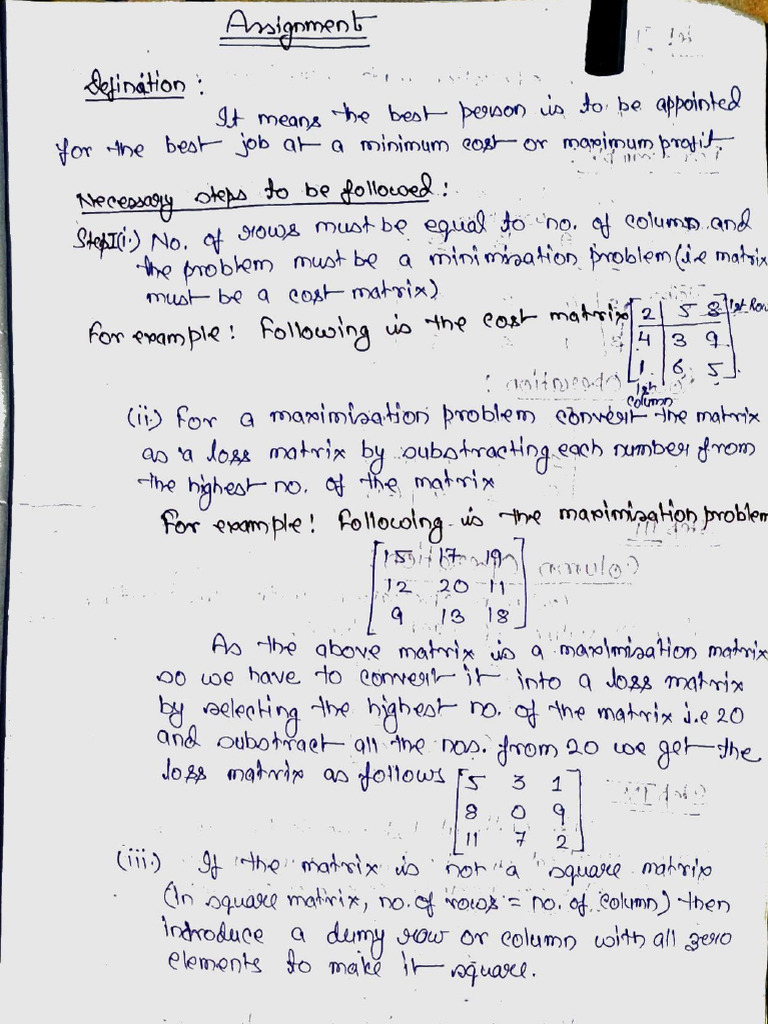 Assignment
Defination :
It means the best person is to be appointed
for the best job at a minimum cost or maximum profit.
Necessary steps to be followed :
Step I (i.) No. of rows must be equal to no. of column and
the problem must be a minimisation problem (i.e matrix
must be a cost matrix)
For example : Following is the cost matrix
[2 5 8] 1st Row
[4 3 9]
[1 6 5]
1st column
(ii.) For a maximisation problem convert the matrix
as a loss matrix by substracting each number from
the highest no. of the matrix
For example : Following is the maximisation problem
[15 17 19]
[12 20 11]
[9 13 18]
As the above matrix is a maximisation matrix
so we have to convert it into a loss matrix
by selecting the highest no. of the matrix i.e 20
and substract all the nos. from 20 we get the
loss matrix as follows
[5 3 1]
[8 0 9]
[11 7 2]
(iii.) If the matrix is not a square matrix
(In square matrix, no. of rows = no. of column) then
introduce a dumy row or column with all zero
elements to make it square.